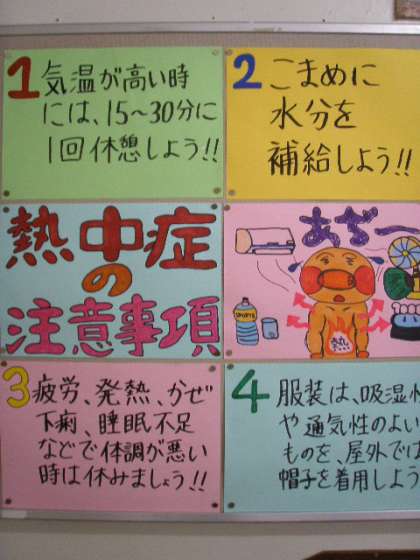 1 気温が高い時
には、15～30分に
1回休憩しよう!!
2 こまめに
水分を
補給しよう!!
熱中症
の
注意事項
あぢ〜
熱
3 疲労、発熱、かぜ
下痢、睡眠不足
などで体調が悪い
時は休みましょう!!
4 服装は、吸湿性
や通気性のよい
ものを、屋外では
帽子を着用しよう